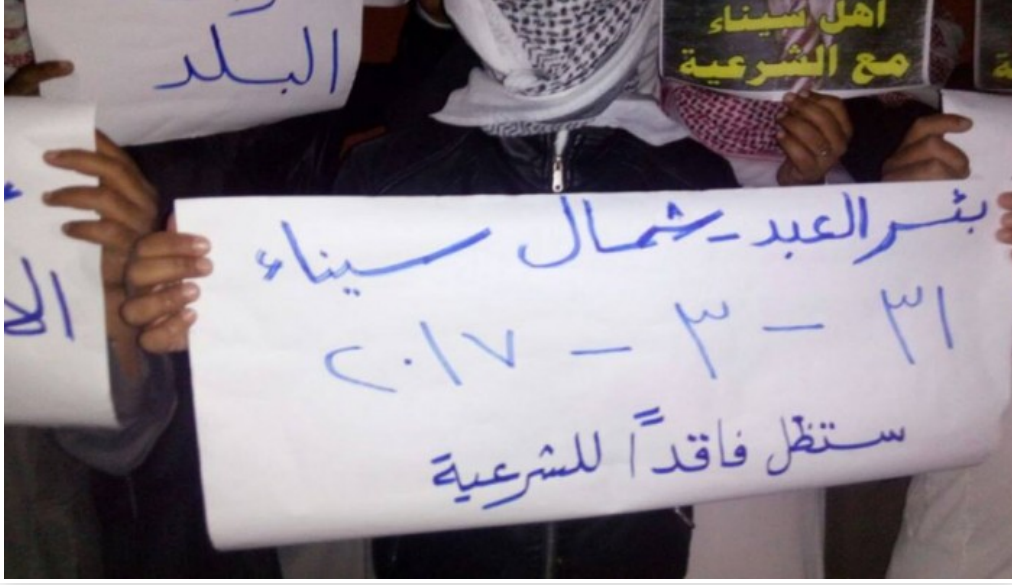 البلد
اهل سيناء
مع الشرعية
بئر العبد - شمال سيناء
٣١ - ٣ - ٢٠١٧
ستظل فاقداً للشرعية